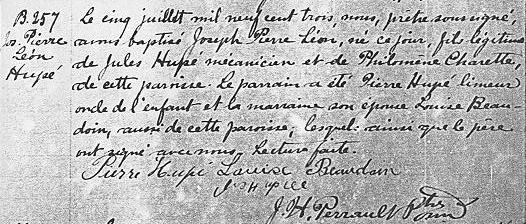 B. 257
Jos. Pierre
Léon
Hupé
Le cinq juillet mil neuf cent trois, nous, prêtre soussigné,
avons baptisé Joseph Pierre Léon, né ce jour, fils légitime
de Jules Hupé mécanicien et de Philomène Charette,
de cette paroisse. Le parrain a été Pierre Hupé limeur
oncle de l'enfant et la marraine son épouse Louise Beau-
doin, aussi de cette paroisse, lesquels ainsi que le père
ont signé avec nous. Lecture faite.
Pierre Hupé Louise Beaudoin
J. H. Perrault ptre